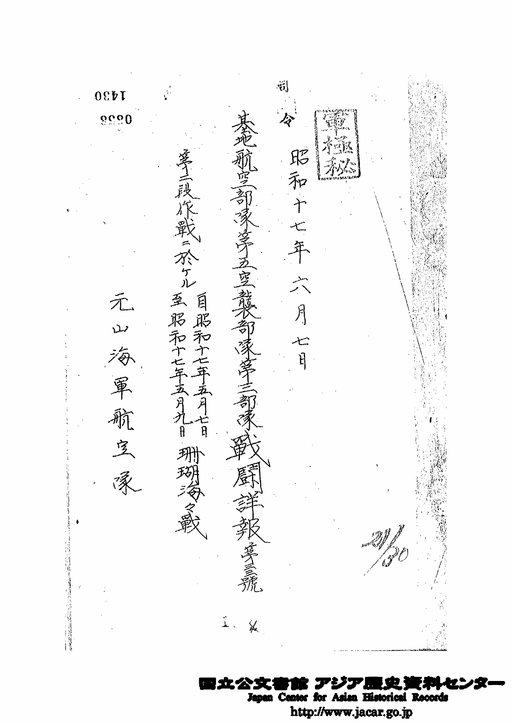 軍極秘
司令
昭和十七年六月七日
基地航空部隊第五空襲部隊第三部隊戦闘詳報第三號
第二段作戦ニ於ケル
自昭和十七年五月七日
至昭和十七年五月九日
珊瑚海々戦
元山海軍航空隊
1430
0333
国立公文書館 アジア歴史資料センター
Japan Center for Asian Historical Records
http://www.jacar.go.jp